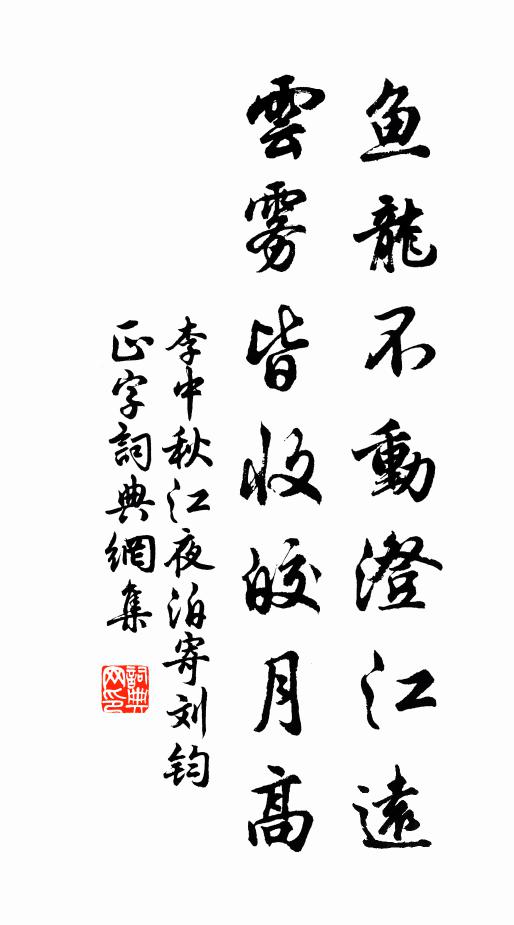 鱼龍不動澄江遠
雲雾皆收皎月高
李中秋江夜泊寄刘鈞
正字詞典網集
詞典
网印